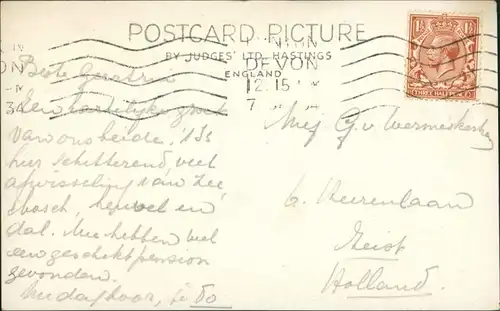 POSTCARD PICTURE
BY JUDGES' LTD HASTINGS
ENGLAND
DEVON
12.15
7
34
THREE HALF PENCE
Beste
Een hartelijke groet
van ons beide, 't Is
hier schitterend, veel
afwisseling van zee,
bosch, heuvel en
dal. We hebben wel
een geschikt pension
gevonden.
Mej G. v.
6. Heerenlaan
Zeist
Holland.